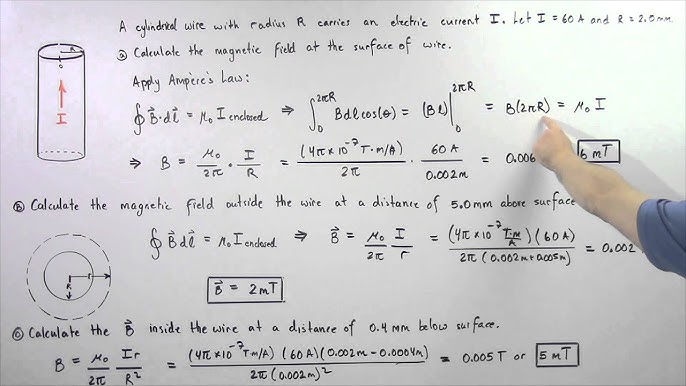 A cylindrical wire with radius R carries an electric current I. Let I = 60 A and R = 2.0 mm.
ⓐ Calculate the magnetic field at the surface of wire.
Apply Ampère's Law:
∮ B⃗·dl⃗ = μ₀ I enclosed ⇒ ∫₀^{2πR} B dl cos(θ) = (Bl)|₀^{2πR} = B(2πR) = μ₀ I
⇒ B = μ₀/2π · I/R = (4π×10⁻⁷ T·m/A)/2π · 60 A/0.002m = 0.006 6 mT
I
ⓑ Calculate the magnetic field outside the wire at a distance of 5.0 mm above surface
∮ B⃗ dl⃗ = μ₀ I enclosed ⇒ B⃗ = μ₀/2π I/r = (4π×10⁻⁷ T·m/A)(60 A)/2π(0.002m+0.005m) = 0.002
R r
B⃗ = 2 mT
ⓒ Calculate the B⃗ inside the wire at a distance of 0.4 mm below surface.
B = μ₀/2π Ir/R² = (4π×10⁻⁷ T·m/A)(60 A)(0.002m−0.0004m)/2π(0.002m)² = 0.005 T or 5 mT